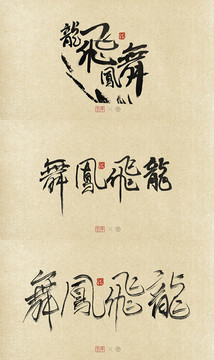 龍飛鳳舞
龍飛鳳舞
龍飛鳳舞